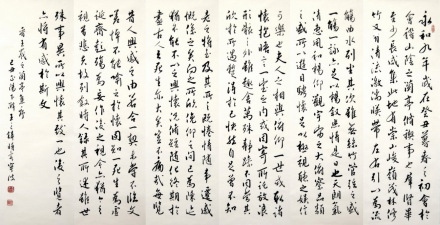 永和九年歲在癸丑暮春之初會於
會稽山陰之蘭亭修禊事也群賢畢
至少長咸集此地有崇山峻嶺茂林修
竹又有清流激湍映帶左右引以為流
觴曲水列坐其次雖無絲竹管弦之盛
一觴一詠亦足以暢敘幽情是日也天朗氣
清惠風和暢仰觀宇宙之大俯察品類
之盛所以遊目騁懷足以極視聽之娛信
可樂也夫人之相與俯仰一世或取諸
懷抱悟言一室之內或因寄所託放浪
形骸之外雖趣舍萬殊靜躁不同當其
欣於所遇暫得於己快然自足曾不知
老之將至及其所之既倦情隨事遷感
慨係之矣向之所欣俯仰之間已為陳迹
猶不能不以之興懷況修短隨化終期於
盡古人云死生亦大矣豈不痛哉每覽
昔人興感之由若合一契未嘗不臨文
嗟悼不能喻之於懷固知一死生為虛
誕齊彭殤為妄作後之視今亦猶今之
視昔悲夫故列敘時人錄其所述雖世
殊事異所以興懷其致一也後之覽者
亦將有感於斯文
晉王羲之蘭亭集序